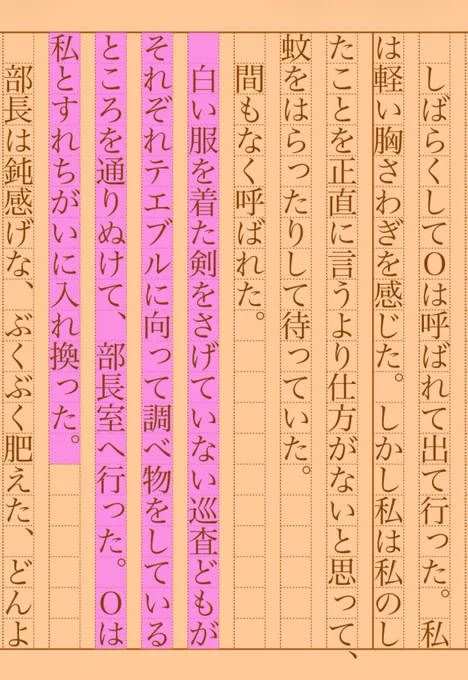 しばらくしてＯは呼ばれて出て行った。私
は軽い胸さわぎを感じた。しかし私は私のし
たことを正直に言うより仕方がないと思って、
蚊をはらったりして待っていた。
　間もなく呼ばれた。
　白い服を着た剣をさげていない巡査どもが
それぞれテエブルに向って調べ物をしている
ところを通りぬけて、部長室へ行った。Ｏは
私とすれちがいに入れ換った。
　部長は鈍感げな、ぶくぶく肥えた、どんよ